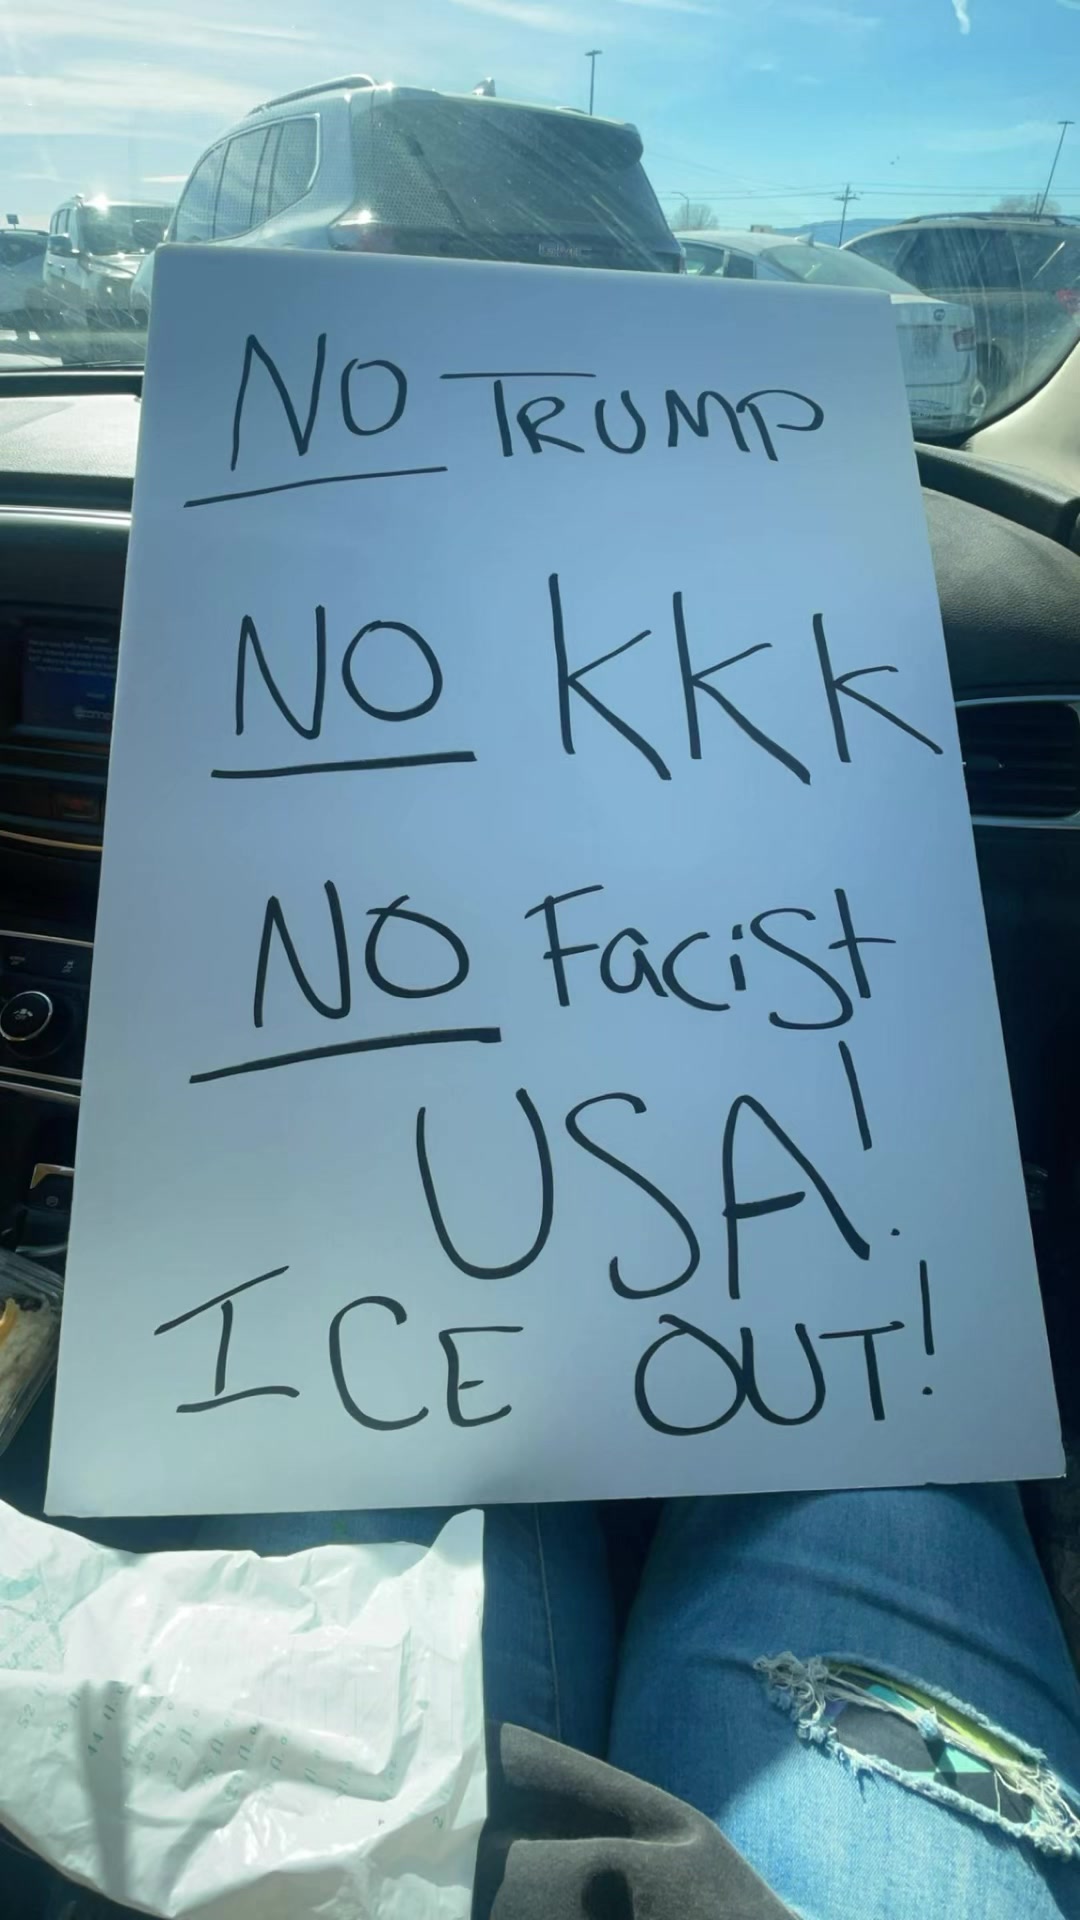 NO TRUMP
NO KKK
NO Facist
USA!
ICE OUT!